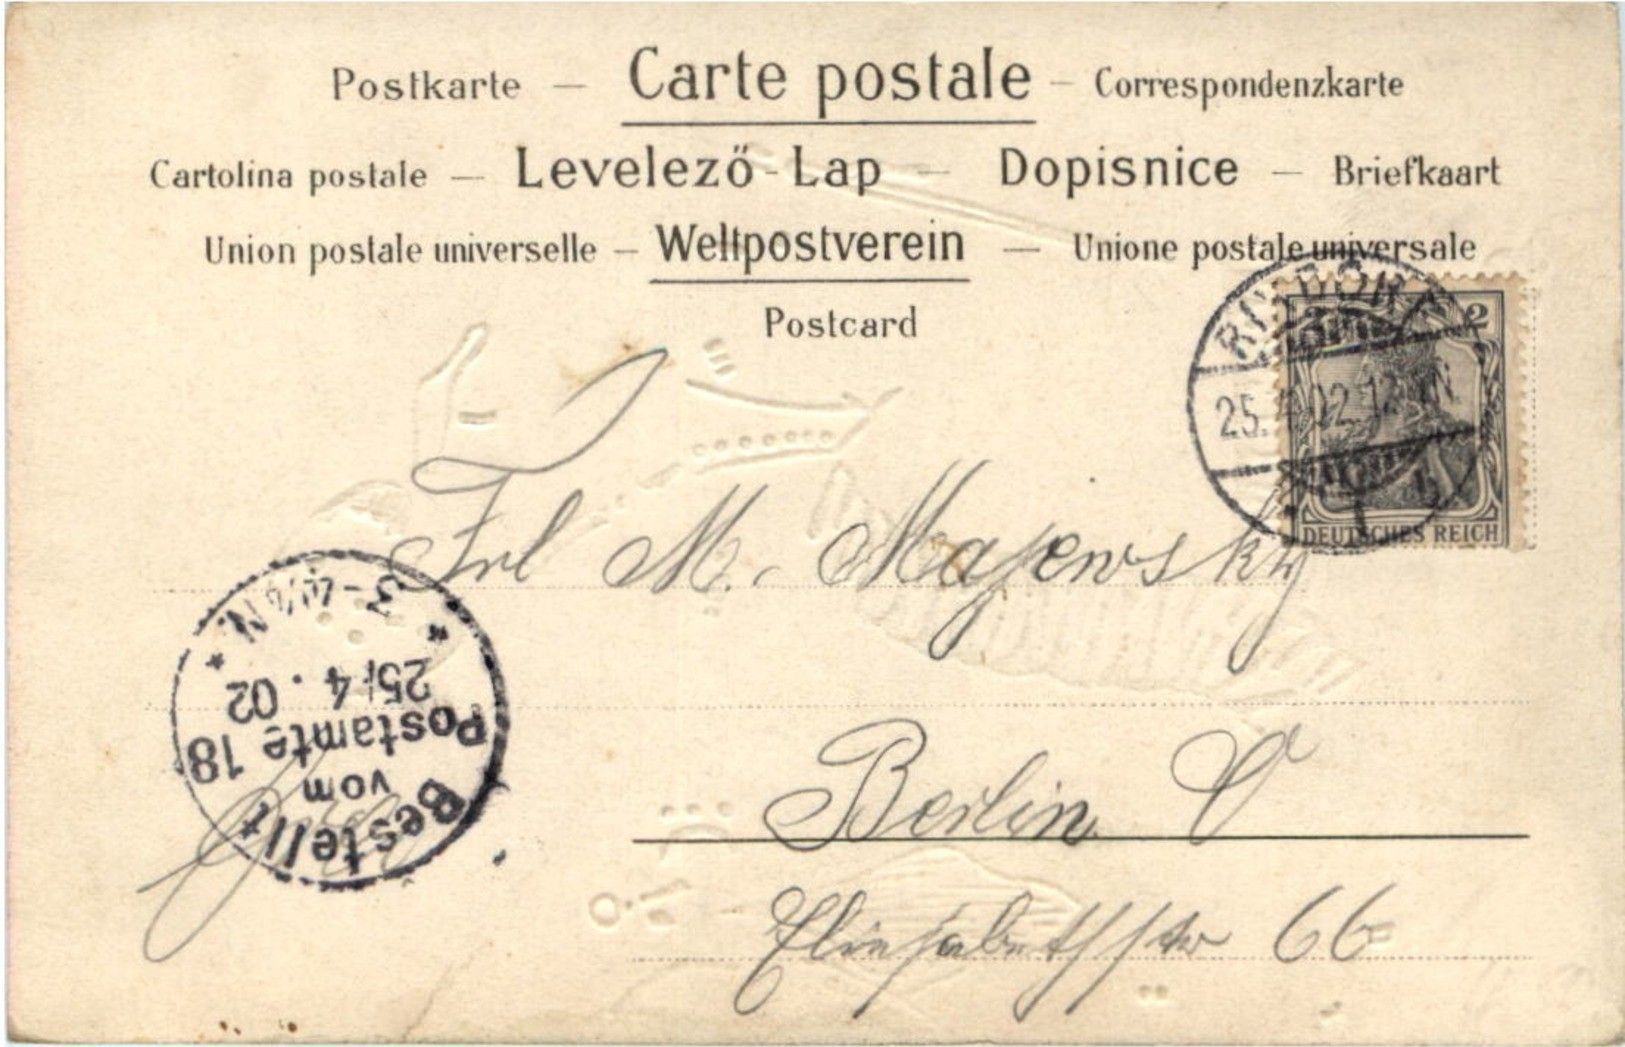 Postkarte — Carte postale — Correspondenzkarte
Cartolina postale — Levelező-Lap — Dopisnice — Briefkaart
Union postale universelle — Weltpostverein — Unione postale universale
Postcard
RIXDORF
25.4.02.12-1N
1
2 2
DEUTSCHES REICH
Frl M. Majewsky
Berlin O
Elisabethstr 66
Bestellt
vom
Postamte 18
25/4.02
3-4¼N